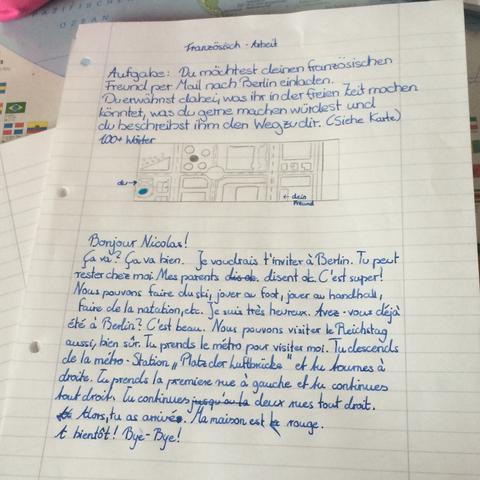 PAZIFISCHER
OZEAN
Französisch - Arbeit
Aufgabe: Du möchtest deinen französischen
Freund per Mail nach Berlin einladen.
Du erwähnst dabei, was ihr in der freien Zeit machen
könntet, was du gerne machen würdest und
du beschreibst ihm den Weg zu dir. (Siehe Karte)
100+ Wörter
du →
← dein
Freund
Bonjour Nicolas!
Ça va? Ça va bien. Je voudrais t'inviter à Berlin. Tu peut
rester chez moi. Mes parents disent ok. C'est super!
Nous pouvons faire du ski, jouer au foot, jouer au handball,
faire de la natation, etc. Je suis très heureux. Avez-vous déjà
été à Berlin? C'est beau. Nous pouvons visiter le Reichstag
aussi, bien sûr. Tu prends le métro pour visiter moi. Tu descends
de la métro-Station „Platz der Luftbrücke" et tu tournes à
droite. Tu prends la premiere rue à gauche et tu continues
tout droit. Tu continues jusqu'au la deux rues tout droit.
Alors, tu as arrivé. Ma maison est rouge.
A bientôt! Bye-Bye!